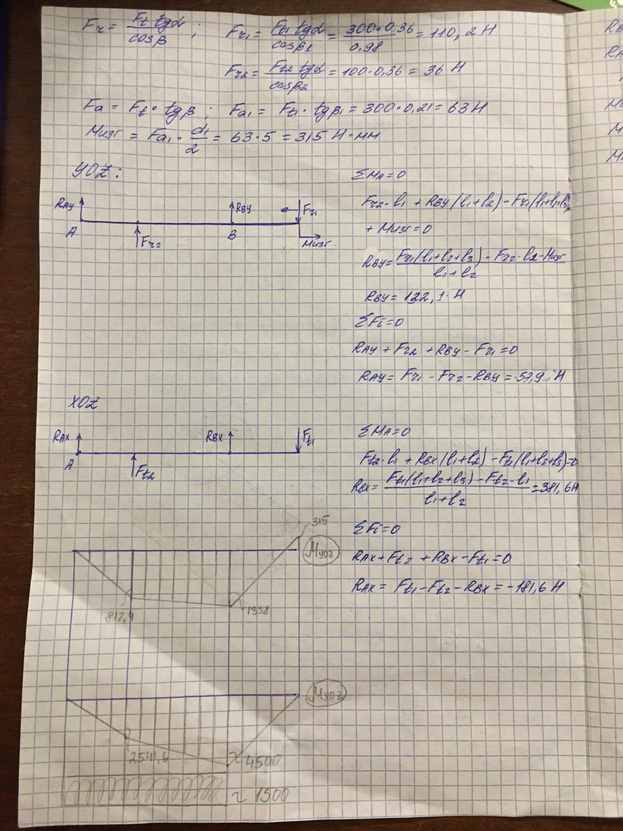 Fr = Ft tgα / cosβ ; Fr1 = Ft1 tgα / cosβ1 = 300·0,36 / 0,98 = 110,2 Н
Fr2 = Ft2 tgα / cosβ2 = 100·0,36 = 36 Н
Fa = Ft · tgβ ; Fa1 = Ft1 · tgβ1 = 300·0,21 = 63 Н
Мизг = Fa1 · d1 / 2 = 63·5 = 315 Н·мм
YOZ:
RAY
RBY
Fr1
A
Fr2
B
Мизг
ΣMA=0
Fr2·l1 + RBY(l1+l2) − Fr1(l1+l2+l3)
+ Мизг = 0
RBY = Fr1(l1+l2+l3) − Fr2·l2 − Мизг / l1+l2
RBY = 122,1 Н
ΣFi=0
RAY + Fr2 + RBY − Fr1 = 0
RAY = Fr1 − Fr2 − RBY = 57,9 Н
XOZ
RAX
RBX
Ft1
A
Ft2
ΣMA=0
Ft2·l1 + RBX(l1+l2) − Ft1(l1+l2+l3)=0
RBX = Ft1(l1+l2+l3) − Ft2·l1 / l1+l2 = 381,6 Н
ΣFi=0
RAX + Ft2 + RBX − Ft1 = 0
RAX = Ft1 − Ft2 − RBX = −181,6 Н
315
MYOZ
812,4
1338
MXOZ
2541,6
4500
~ 1500